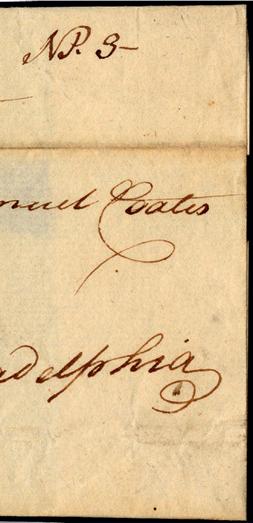 NP. 3-
muel Coates
adelphia